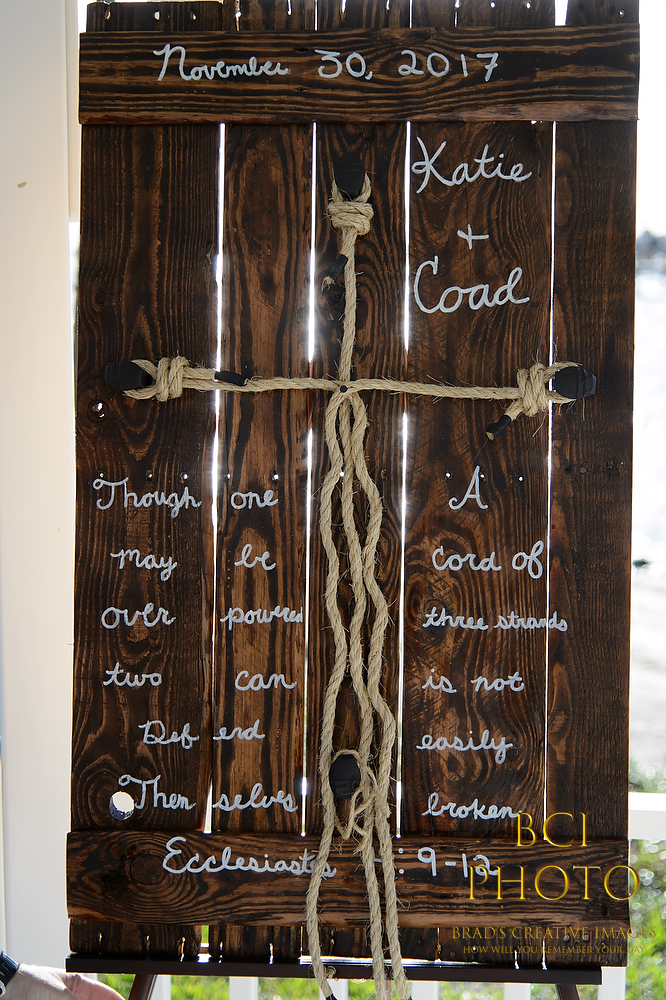 November 30, 2017
Katie
+
Coad
Though one
may be
over powered
two can
Defend
Then selves
A
cord of
three strands
is not
easily
broken
Ecclesiastes 4:9-12
BCI
PHOTO
BRAD'S CREATIVE IMAGES
HOW WILL YOU REMEMBER YOUR